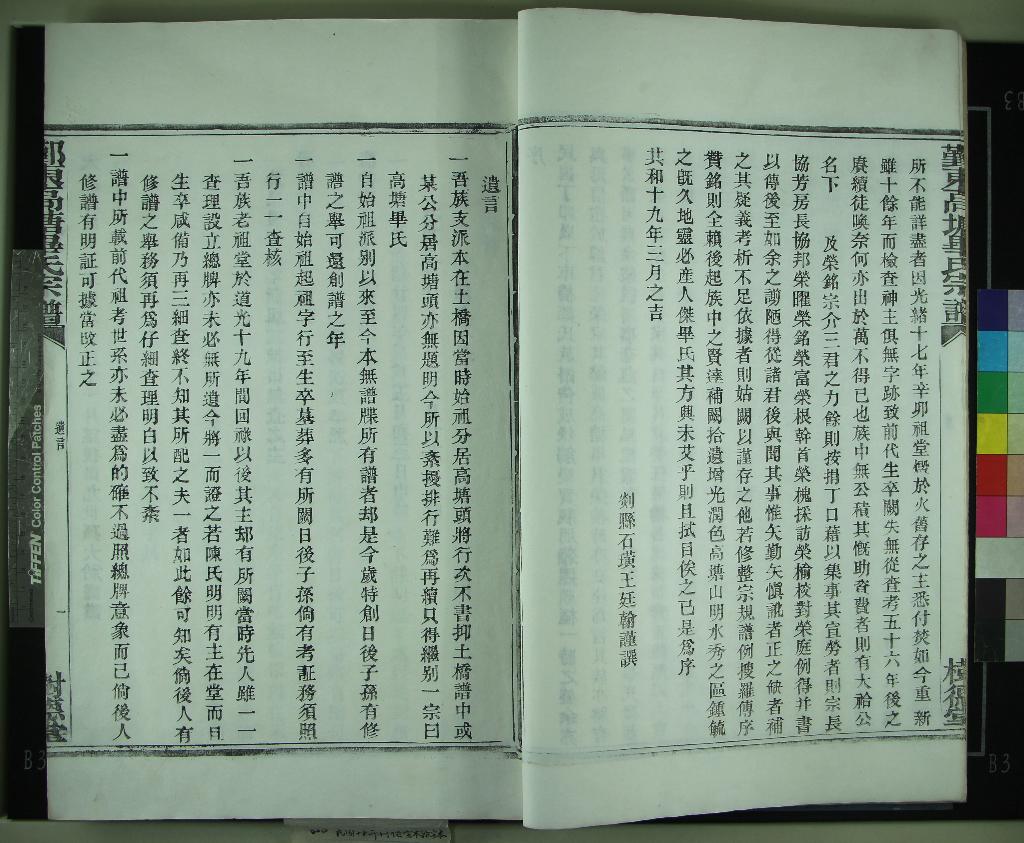 所不能詳盡者因光緒十七年辛卯祖堂燬於火舊存之主悉付焚如今重新
雖十餘年而檢查神主俱無字跡致前代生卒闕失無從查考五十六年後之
賡續徒喚奈何亦出於萬不得已也族中無公積其慨助資費者則有大給公
名下　及榮銘宗介三君之力餘則按捐丁口藉以集事其宣勞者則宗長
協芳房長協邦榮曜榮銘榮富榮根幹首榮槐採訪榮榆校對榮庭例得并書
以傳後至如余之謭陋得從諸君後與聞其事惟矢勤矢愼訛者正之缺者補
之其疑義考析不足依據者則姑闕以謹存之他若修整宗規譜例搜羅傳序
贊銘則全賴後起族中之賢達補闕拾遺增光潤色高塘山明水秀之區鍾毓
之旣久地靈必產人傑畢氏其方興未艾乎則且拭目俟之已是爲序
共和十九年三月之吉
剡縣石璜王廷翰謹譔
遺言
一吾族支派本在土橋因當時始祖分居高塘頭將行次不書抑土橋譜中或
某公分居高塘頭亦無題明今所以紊擾排行難爲再續只得繼别一宗曰
高塘畢氏
一自始祖派别以來至今本無譜牒所有譜者却是今歲特創日後子孫有修
譜之舉可還創譜之年
一譜中自始祖起祖字行至生卒墓葬多有所闕日後子孫倘有考証務須照
行一一查核
一吾族老祖堂於道光十九年間回祿以後其主却有所闕當時先人雖一一
查理設立總牌亦未必無所遺今將一而證之若陳氏明明有主在堂而日
生卒咸備乃再三細查終不知其所配之夫一者如此餘可知矣倘後人有
修譜之舉務須再爲仔細查理明白以致不紊
一譜中所載前代祖考世系亦未必盡爲的確不過照總牌意象而已倘後人
修譜有明証可據當改正之
遺言
一
TIFFEN Color Control Patches
B3
B3